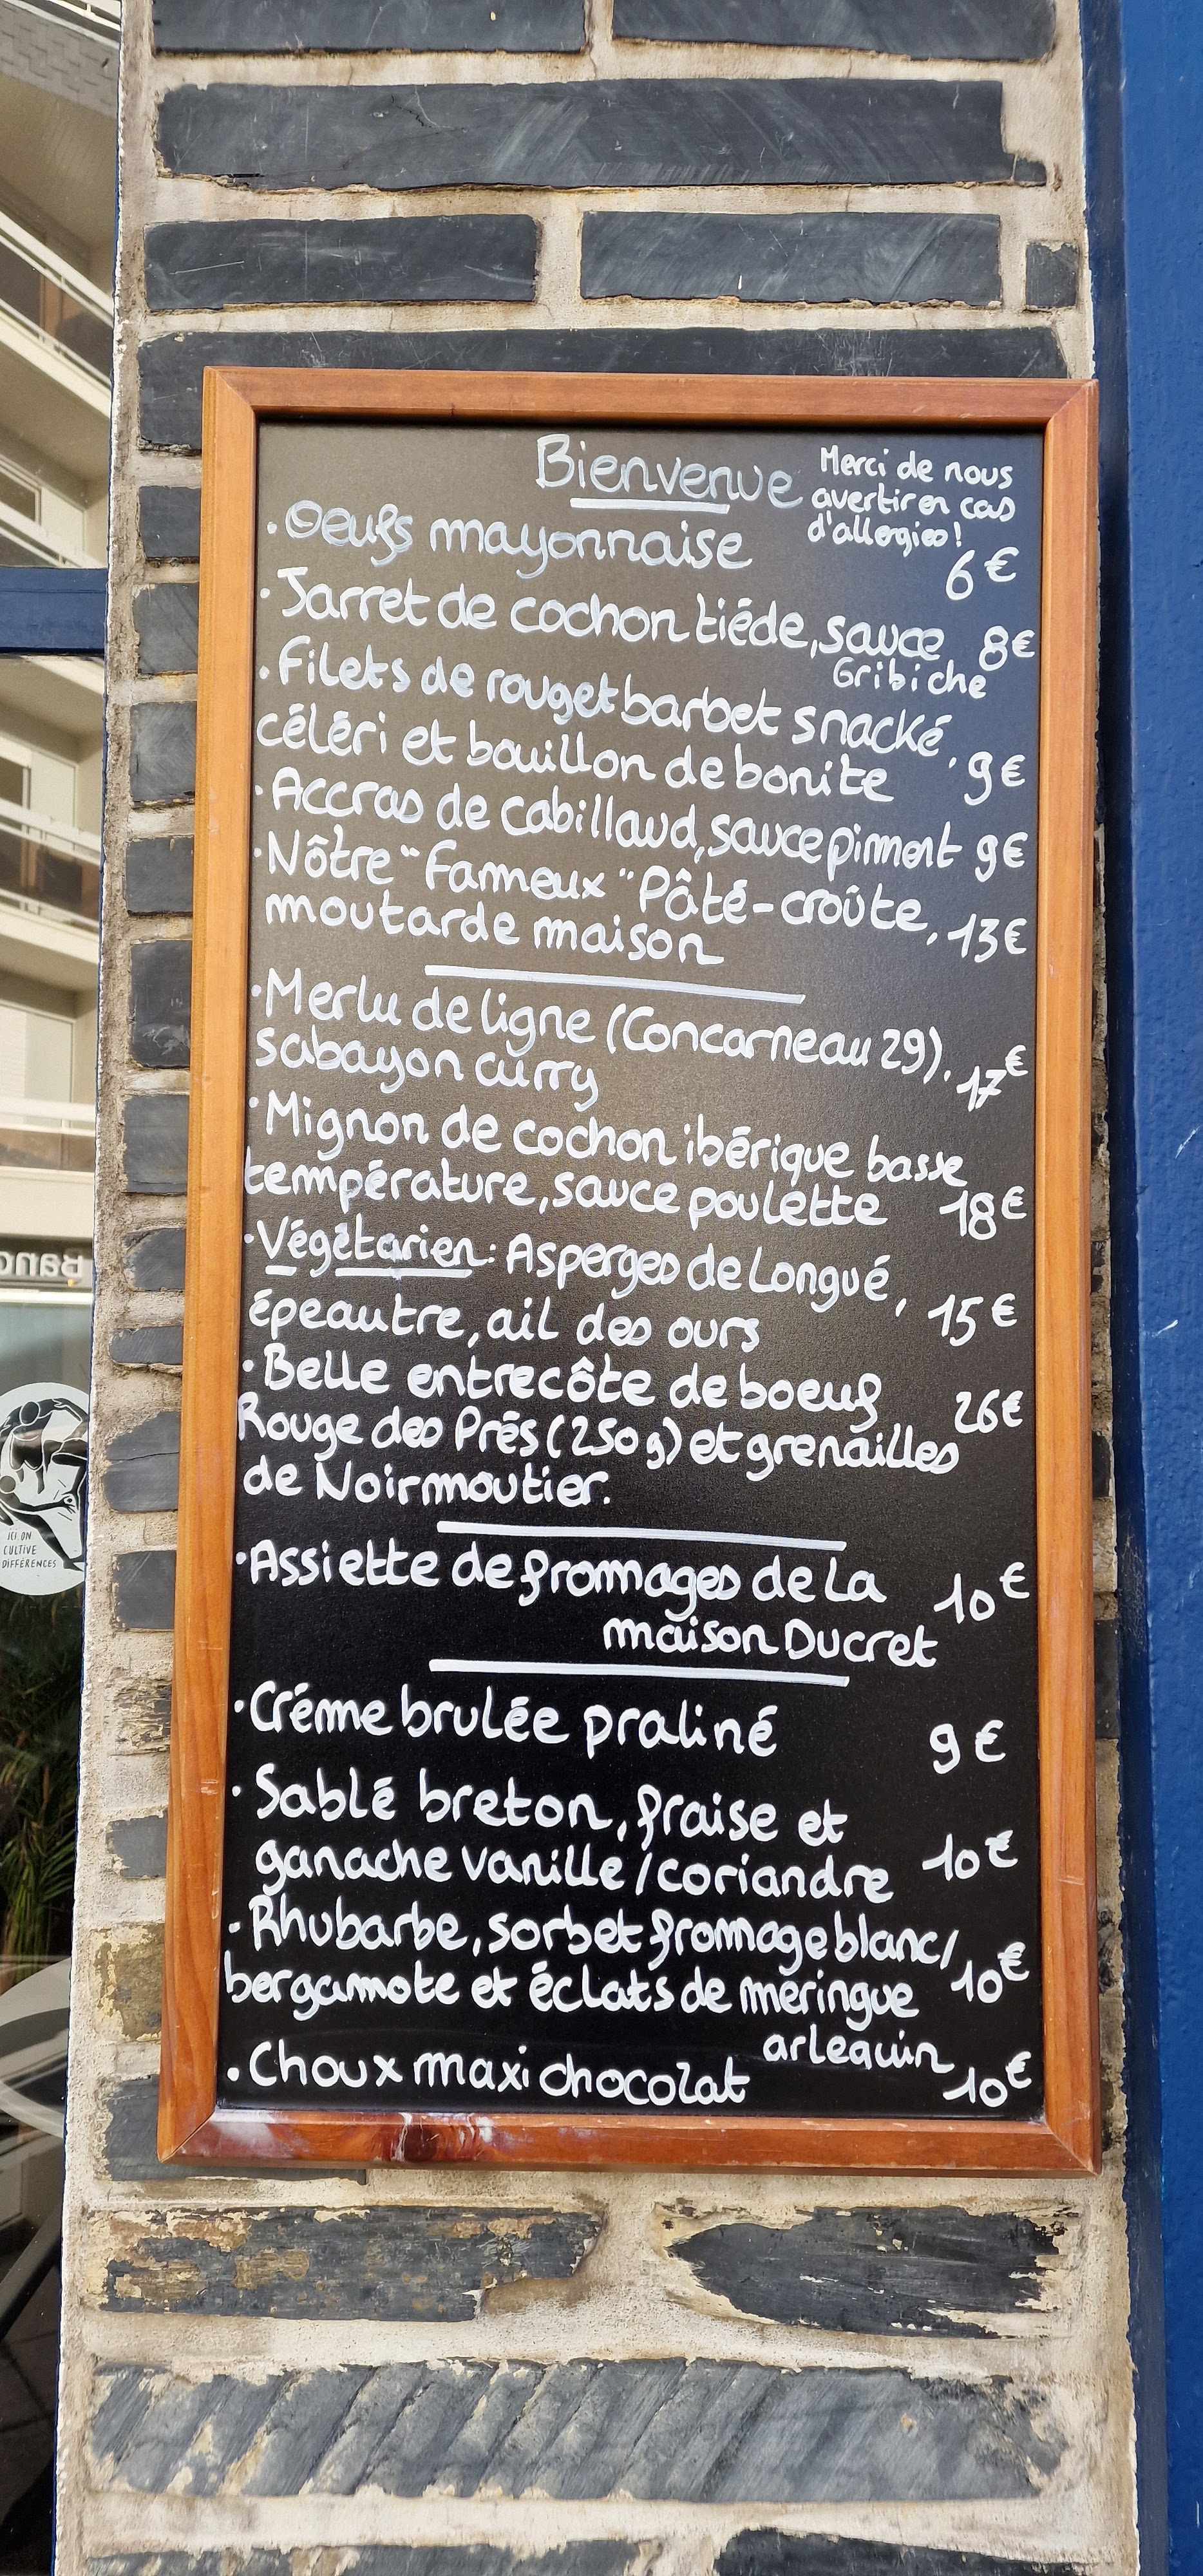 Bienvenue
Merci de nous
avertir en cas
d'allergies!
· Oeufs mayonnaise 6€
· Jarret de cochon tiéde, sauce 8€
Gribiche
· Filets de rouget barbet snacké,
céléri et bouillon de bonite 9€
· Accras de cabillaud, sauce piment 9€
· Nôtre "Fameux" Pâté-croûte,
moutarde maison 13€
· Merlu de ligne (Concarneau 29),
sabayon curry 17€
· Mignon de cochon ibérique basse
température, sauce poulette 18€
· Végétarien: Asperges de Longué,
épeautre, ail des ours 15€
· Belle entrecôte de boeuf 26€
Rouge des Prés (250g) et grenailles
de Noirmoutier.
· Assiette de fromages de la 10€
maison Ducret
· Créme brulée praliné 9€
· Sablé breton, fraise et
ganache vanille/coriandre 10€
- Rhubarbe, sorbet fromage blanc/
bergamote et éclats de meringue 10€
arlequin
· Choux maxi chocolat 10€
Banq
ICI ON
CULTIVE
DIFFÉRENCES